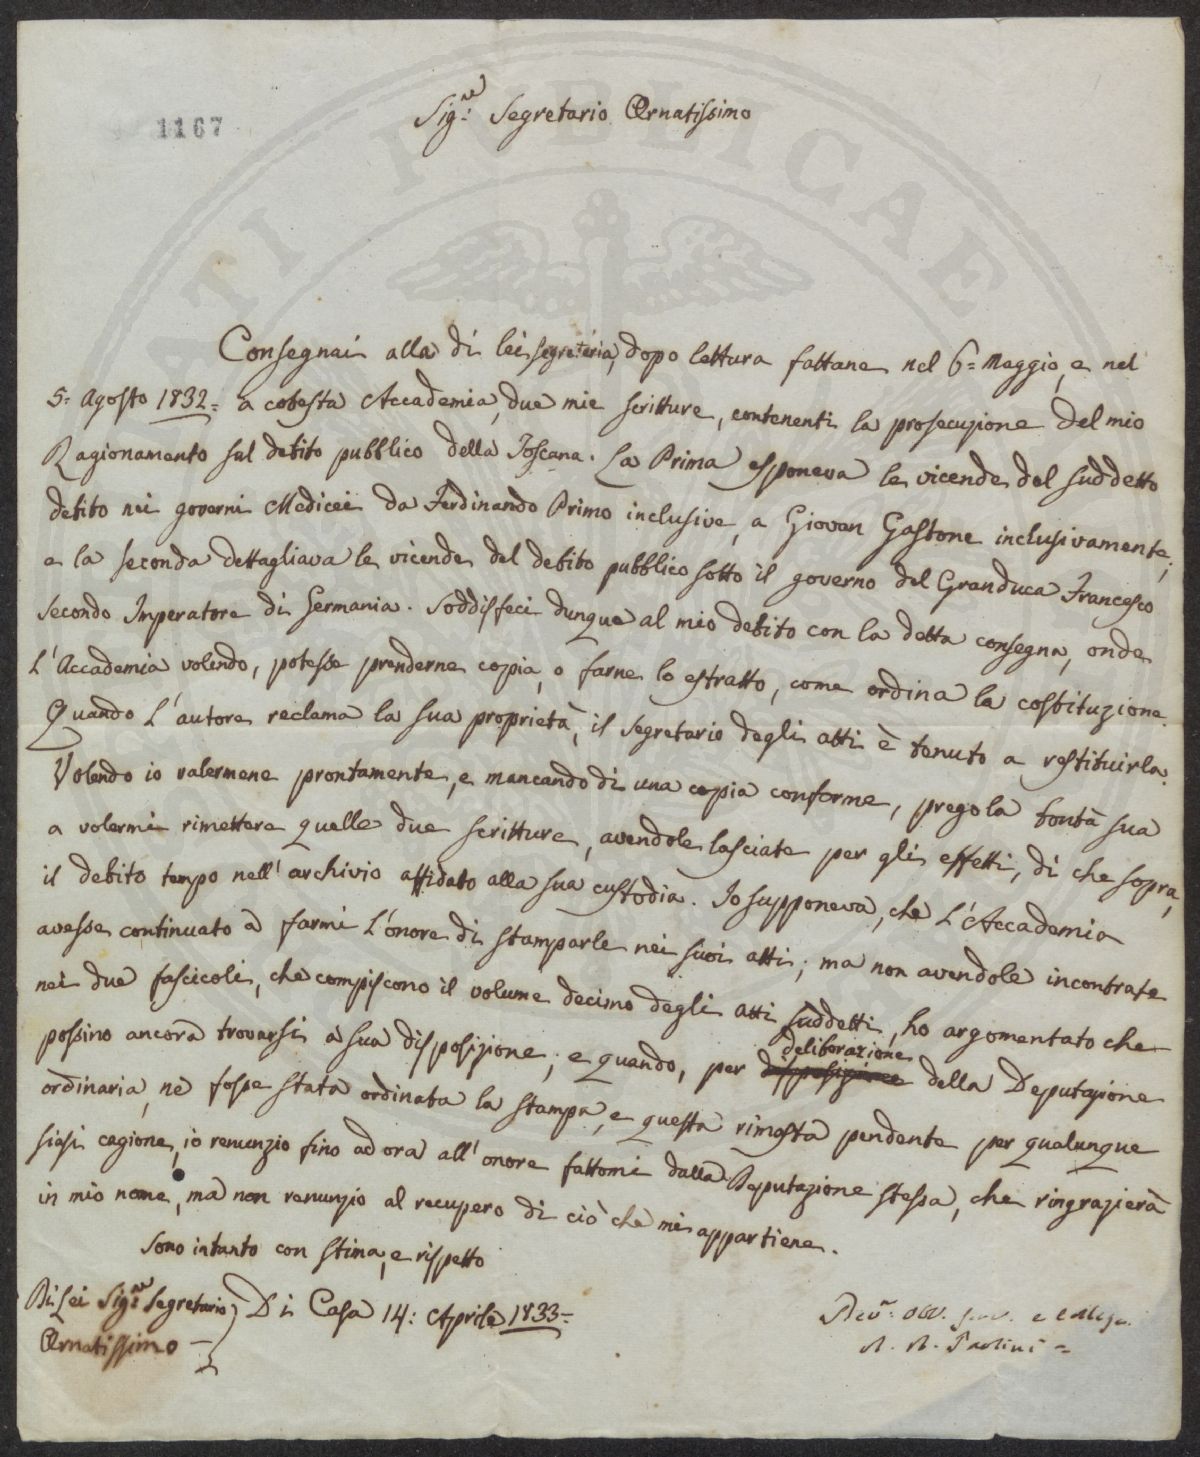 1167
Sig.re Segretario Ornatissimo
Consegnai alla di lei segreteria, dopo lettura fattane nel 6= Maggio, e nel
5= Agosto 1832= a cotesta Accademia, due mie scritture, contenenti la prosecuzione del mio
Ragionamento sul debito pubblico della Toscana. La Prima esponeva le vicende del suddetto
debito nei governi Medicei da Ferdinando Primo inclusive, a Giovan Gastone inclusivamente;
e la seconda dettagliava le vicende del debito pubblico sotto il governo del Granduca Francesco
Secondo Imperatore di Germania. Soddisfeci dunque al mio debito con la detta consegna, onde
L'Accademia volendo, potesse prenderne copia, o farne lo estratto, come ordina la costituzione.
Quando L'autore reclama la sua proprietà, il segretario degli atti è tenuto a restituirla.
Volendo io valermene prontamente, e mancando di una copia conforme, prego la bontà sua
a volermi rimettere quelle due scritture, avendole lasciate per gli effetti, di che sopra,
il debito tempo nell'archivio affidato alla sua custodia. Io supponeva, che L'Accademia
avesse continuato a farmi L'onore di stamparle nei suoi atti; ma non avendole incontrate
nei due fascicoli, che compiscono il volume decimo degli atti suddetti, ho argomentato che
possino ancora trovarsi a sua disposizione; e quando, per disposizione deliberazione della Deputazione
ordinaria, ne fosse stata ordinata la stampa, e questa rimasta pendente per qualunque
siasi cagione, io renunzio fino ad ora all'onore fattomi dalla Deputazione stessa, che ringrazierà
in mio nome, ma non renunzio al recupero di ciò che mi appartiene.
Sono intanto con stima, e rispetto
Di Lei Sig.re Segretario Di Casa 14: Aprile 1833=
Ornatissimo
Dev.o Obb. serv. e Collega
A. A. Paolini =